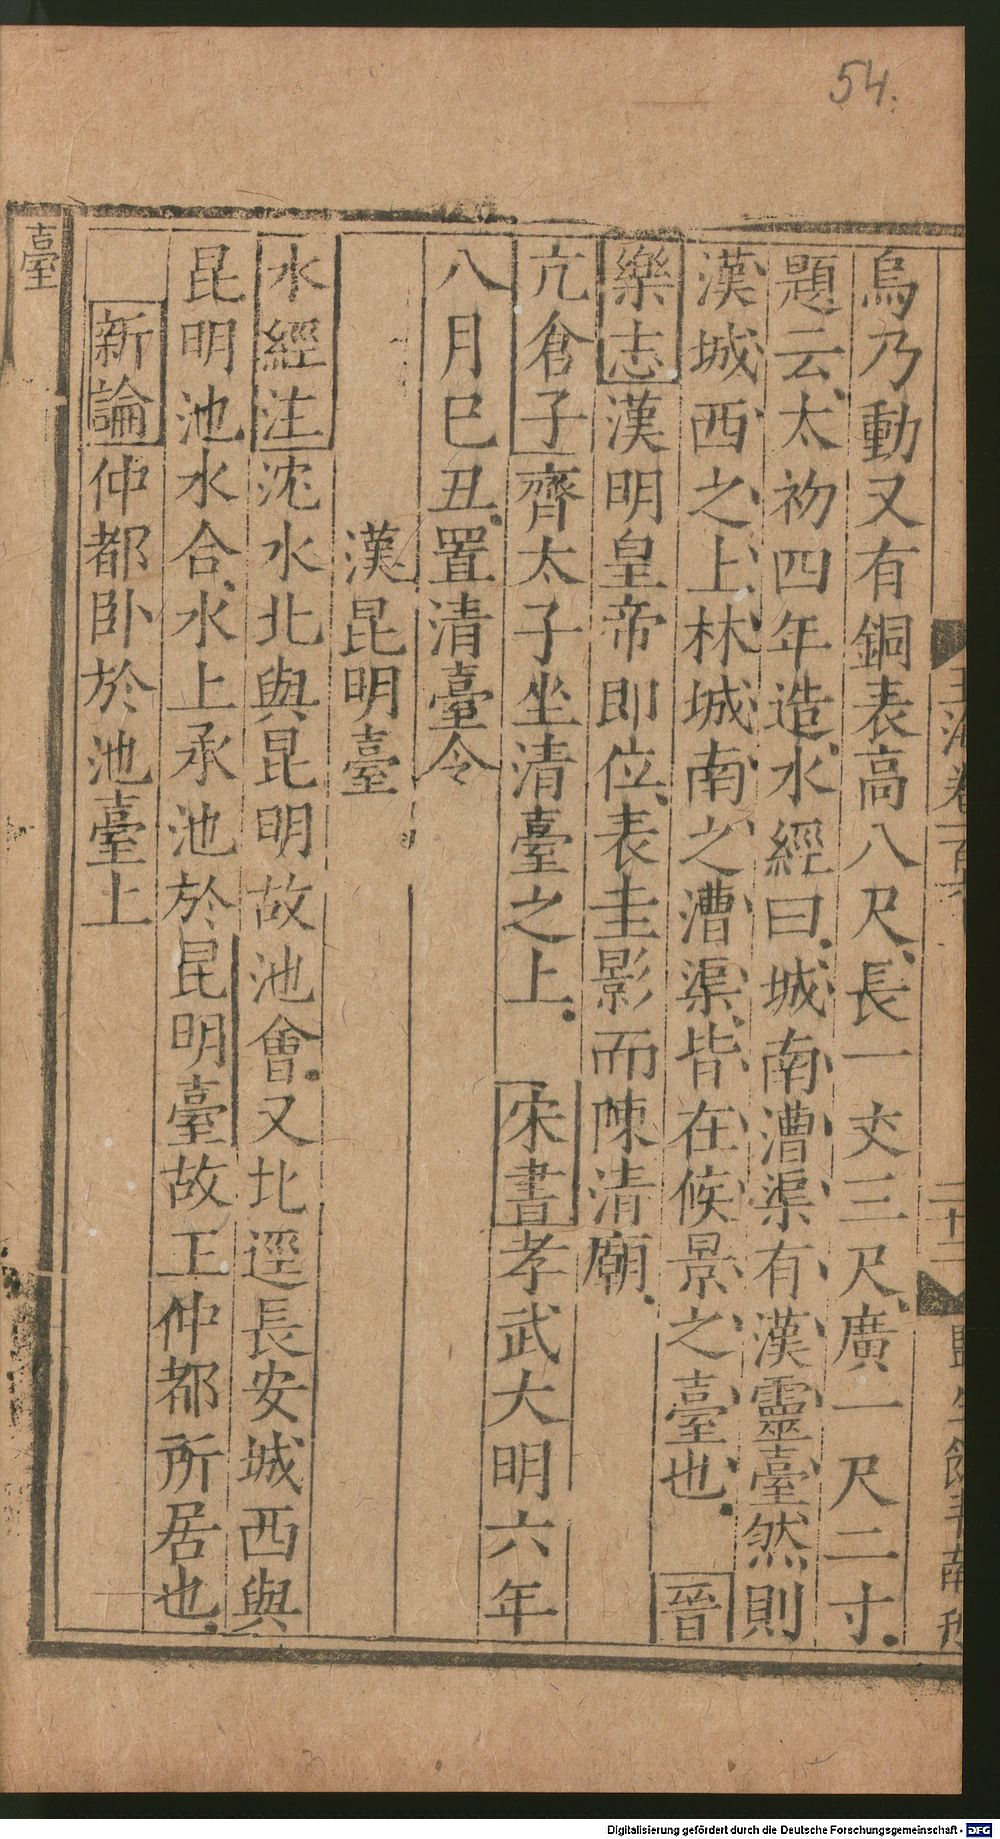 54.
烏乃動又有銅表高八尺長一丈三尺廣一尺二寸
題云太初四年造水經曰城南漕渠有漢靈臺然則
漢城西之上林城南之漕渠皆在候景之臺也 晉
樂志漢明皇帝即位表圭影而陳清廟
亢倉子齊太子坐清臺之上 宋書孝武大明六年
八月巳丑置清臺令
漢昆明臺
水經注沈水北與昆明故池會又北逕長安城西與
昆明池水合水上承池於昆明臺故王仲都所居也
新論仲都卧於池臺上
臺
Digitalisierung gefördert durch die Deutsche Forschungsgemeinschaft - DFG